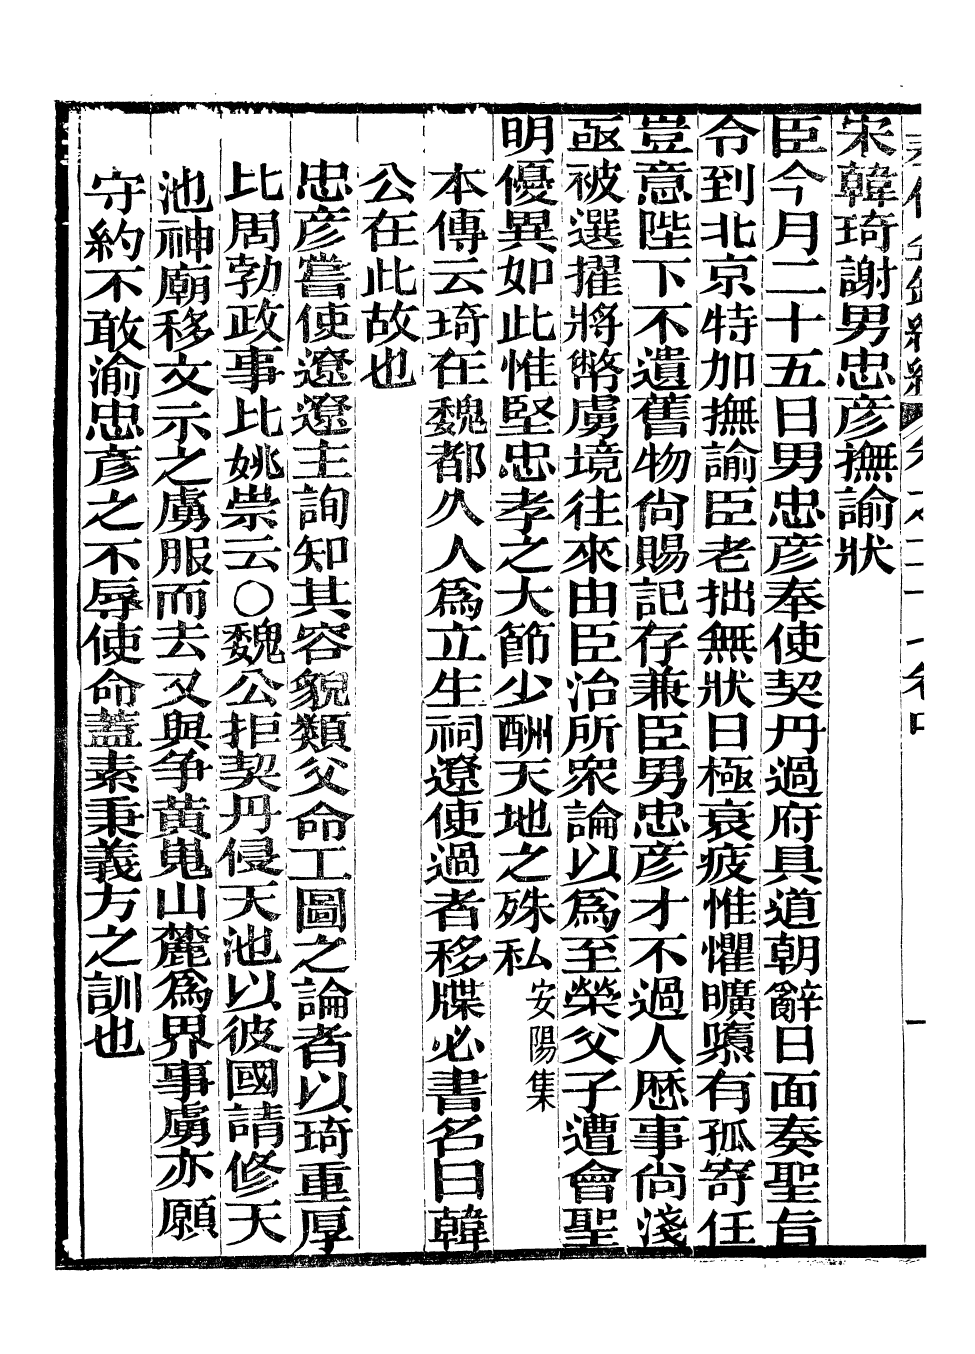 宋韓琦謝男忠彦撫諭狀
臣今月二十五日男忠彦奉使契丹過府具道朝辭日面奏聖旨
令到北京特加撫諭臣老拙無狀日極衰疲惟懼曠隳有孤寄任
豈意陛下不遺舊物尙賜記存兼臣男忠彦才不過人歷事尙淺
亟被選擢將幣虜境往來由臣治所衆論以爲至榮父子遭會聖
明優異如此惟堅忠孝之大節少酬天地之殊私安陽集
本傳云琦在魏都久人爲立生祠遼使過者移牒必書名曰韓
公在此故也
忠彦嘗使遼遼主詢知其容貌類父命工圖之論者以琦重厚
比周勃政事比姚崇云○魏公拒契丹侵天池以彼國請修天
池神廟移文示之虜服而去又與爭黃嵬山麓爲界事虜亦願
守約不敢渝忠彦之不辱使命蓋素秉義方之訓也